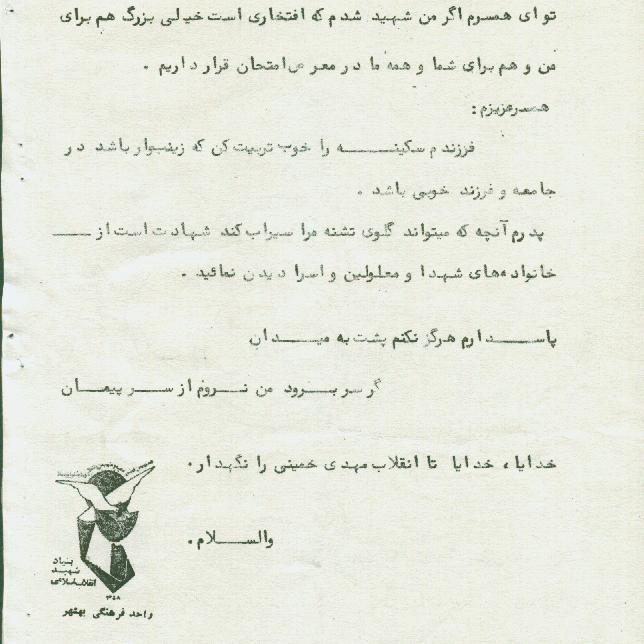 تو ای همسرم اگر من شهید شدم که افتخاری است خیلی بزرگ هم برای
من و هم برای شما و همه ما در معرض امتحان قرار داریم .
همسرعزیزم :
فرزندم سکینــــه را خوب تربیت کن که زینب‌وار باشد در
جامعه و فرزند خوبی باشد .
پدرم آنچه که میتواند گلوی تشنه مرا سیراب کند شهادت است از ــــ
خانواده‌های شهدا و معلولین و اسرا دیدن نمائید .
پاســـدارم هرگز نکنم پشت به میـــدان
گر سر بــرود من نــروم از ســر پیمــان
خدایا ، خدایا تا انقلاب مهدی خمینی را نگهدار .
والســـلام .
بنیاد
شهید
انقلاب اسلامی
۱۳۵۸
واحد فرهنگی بهشهر